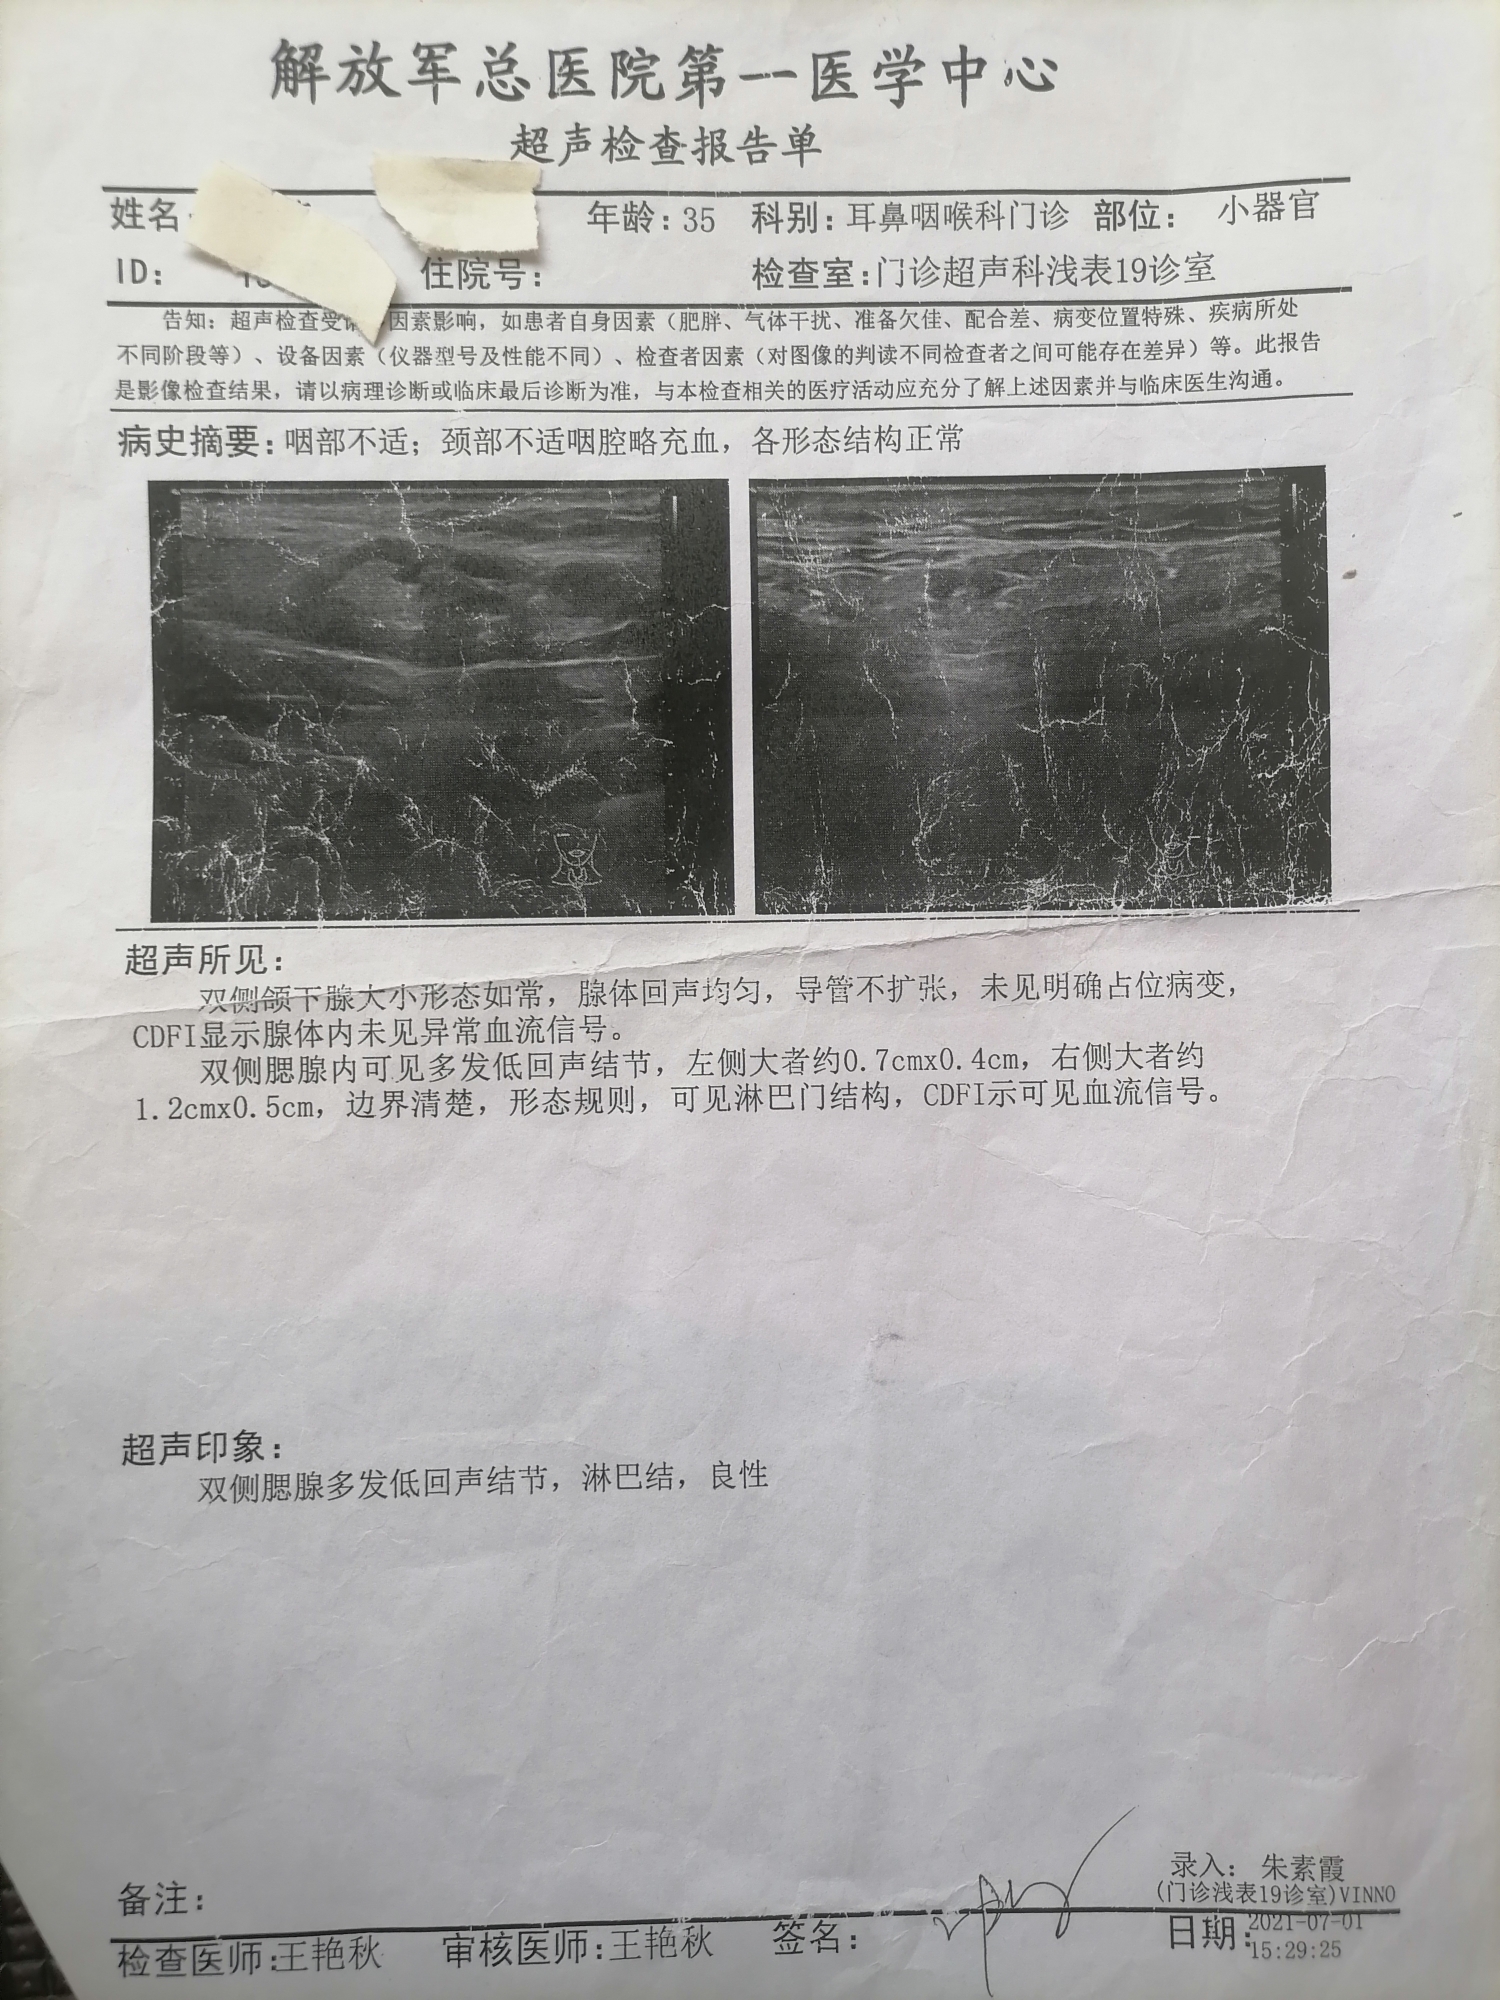 解放军总医院第一医学中心
超声检查报告单
姓名 年龄：35 科别：耳鼻咽喉科门诊 部位： 小器官
ID： 住院号： 检查室：门诊超声科浅表19诊室
告知：超声检查受 因素影响，如患者自身因素（肥胖、气体干扰、准备欠佳、配合差、病变位置特殊、疾病所处
不同阶段等）、设备因素（仪器型号及性能不同）、检查者因素（对图像的判读不同检查者之间可能存在差异）等。此报告
是影像检查结果，请以病理诊断或临床最后诊断为准，与本检查相关的医疗活动应充分了解上述因素并与临床医生沟通。
病史摘要：咽部不适；颈部不适咽腔略充血，各形态结构正常
超声所见：
双侧颌下腺大小形态如常，腺体回声均匀，导管不扩张，未见明确占位病变，
CDFI显示腺体内未见异常血流信号。
双侧腮腺内可见多发低回声结节，左侧大者约0.7cmx0.4cm，右侧大者约
1.2cmx0.5cm，边界清楚，形态规则，可见淋巴门结构，CDFI示可见血流信号。
超声印象：
双侧腮腺多发低回声结节，淋巴结，良性
录入： 朱素霞
(门诊浅表19诊室)VINNO
备注：
检查医师：王艳秋 审核医师：王艳秋 签名： 日期：2021-07-01
15:29:25